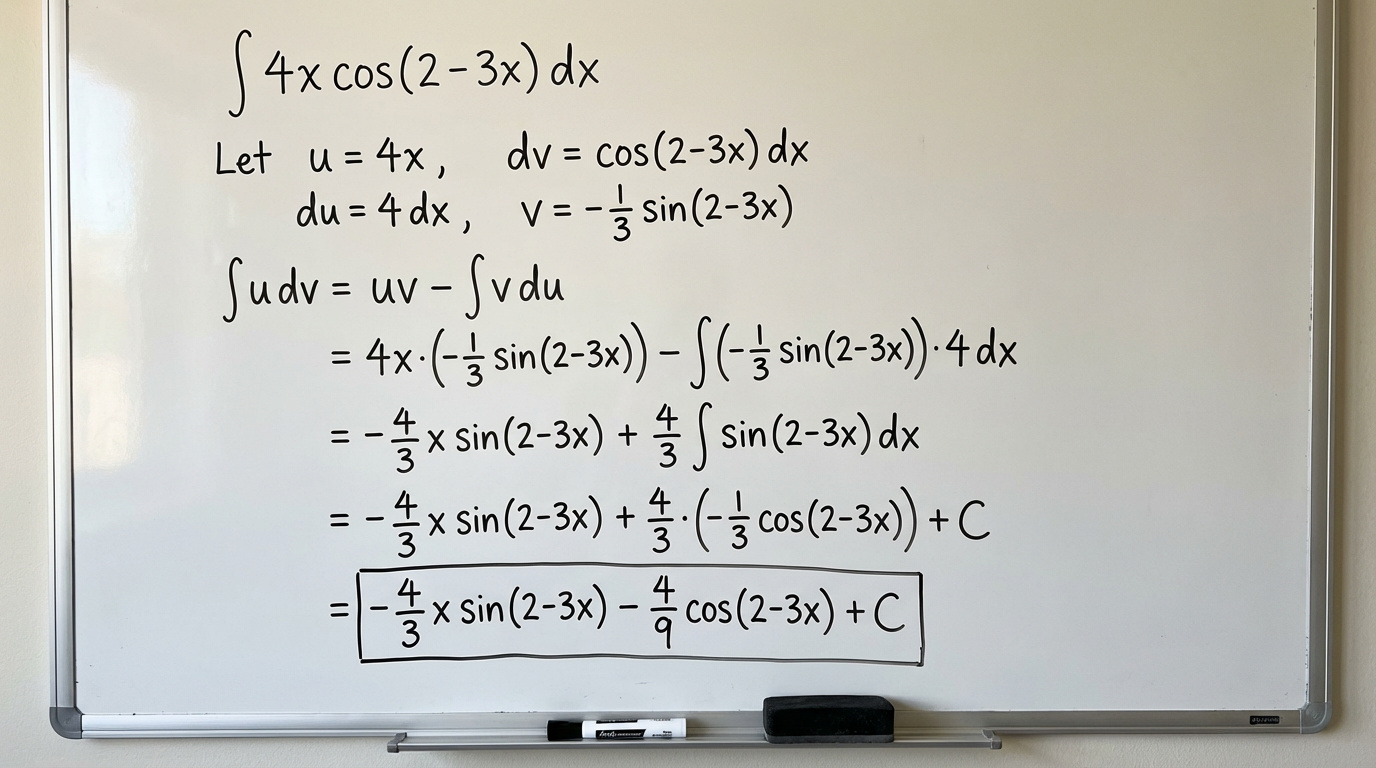 ∫ 4x cos(2−3x) dx
Let u = 4x, dv = cos(2−3x) dx
du = 4 dx, v = −1/3 sin(2−3x)
∫u dv = uv − ∫v du
= 4x·(−1/3 sin(2−3x)) − ∫(−1/3 sin(2−3x))·4 dx
= −4/3 x sin(2−3x) + 4/3 ∫ sin(2−3x) dx
= −4/3 x sin(2−3x) + 4/3·(−1/3 cos(2−3x)) + C
= −4/3 x sin(2−3x) − 4/9 cos(2−3x) + C